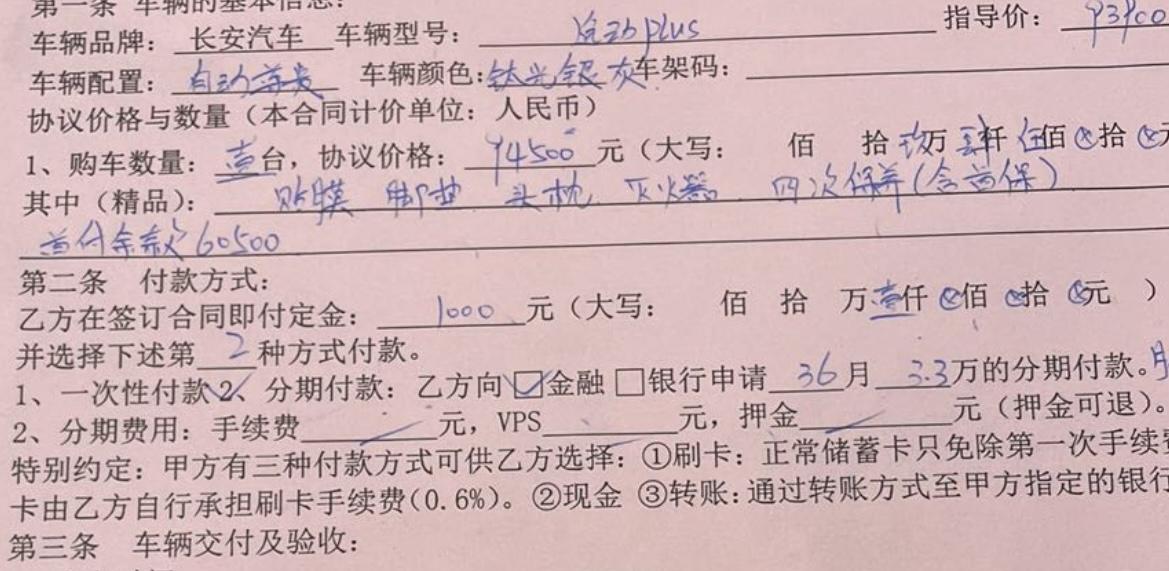 第一条 车辆的基本信息:
车辆品牌: 长安汽车 车辆型号: 逸动plus 指导价: 93900
车辆配置: 自动尊贵 车辆颜色:钛光银灰 车架码:
协议价格与数量(本合同计价单位: 人民币)
1、购车数量: 壹台, 协议价格: 94500 元(大写: 佰 拾 玖万 肆仟 伍佰 ⊗拾 ⊗元
其中(精品): 贴膜 脚垫 头枕 灭火器 四次保养(含首保)
首付余款 60500
第二条 付款方式:
乙方在签订合同即付定金: 1000 元(大写: 佰 拾 万 壹仟 ⊗佰 ⊗拾 ⊗元 )
并选择下述第 2 种方式付款。
1、一次性付款 2、分期付款: 乙方向 ☑金融 □银行申请 36 月 3.3万的分期付款。月
2、分期费用: 手续费 元, VPS 元, 押金 元(押金可退)。
特别约定: 甲方有三种付款方式可供乙方选择: ①刷卡: 正常储蓄卡只免除第一次手续费
卡由乙方自行承担刷卡手续费(0.6%)。②现金 ③转账: 通过转账方式至甲方指定的银行
第三条 车辆交付及验收: